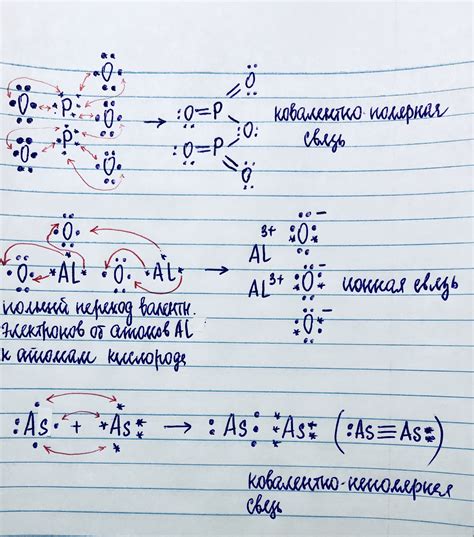 O
O P O
→ O=P O
O P
O=P O
O P O
O
ковалентно-полярная
связь
O
O AL O AL → AL³⁺ O⁻
AL³⁺ O⁻
O⁻
ионная связь
полный переход валентн.
электронов от атомов AL
к атомам кислорода
:As + As → :As As: (:As≡As:)
ковалентно-неполярная
связь